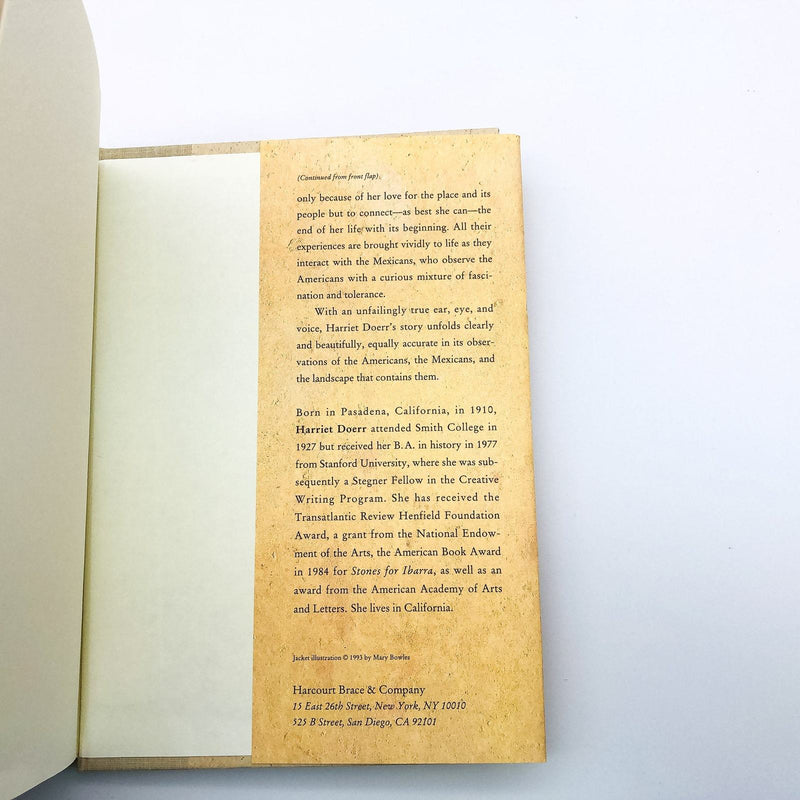 (Continued from front flap)
only because of her love for the place and its
people but to connect—as best she can—the
end of her life with its beginning. All their
experiences are brought vividly to life as they
interact with the Mexicans, who observe the
Americans with a curious mixture of fasci-
nation and tolerance.
With an unfailingly true ear, eye, and
voice, Harriet Doerr's story unfolds clearly
and beautifully, equally accurate in its obser-
vations of the Americans, the Mexicans, and
the landscape that contains them.
Born in Pasadena, California, in 1910,
Harriet Doerr attended Smith College in
1927 but received her B.A. in history in 1977
from Stanford University, where she was sub-
sequently a Stegner Fellow in the Creative
Writing Program. She has received the
Transatlantic Review Henfield Foundation
Award, a grant from the National Endow-
ment of the Arts, the American Book Award
in 1984 for Stones for Ibarra, as well as an
award from the American Academy of Arts
and Letters. She lives in California.
Jacket illustration © 1993 by Mary Bowles
Harcourt Brace & Company
15 East 26th Street, New York, NY 10010
525 B Street, San Diego, CA 92101